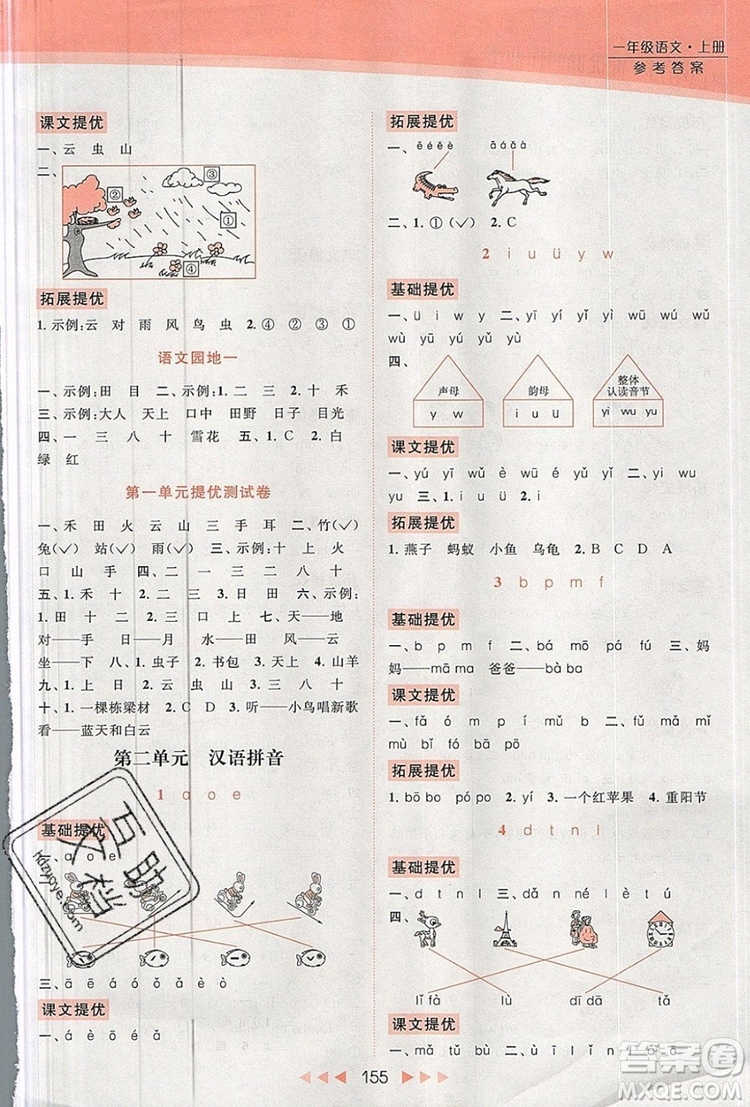 一年级语文·上册
参考答案
课文提优
一、云 虫 山
二、
③
②
①
④
拓展提优
1. 示例:云 对 雨 风 鸟 虫 2. ④ ② ③ ①
语文园地一
一、示例:田 目 二、示例:1. 二 三 2. 十 禾
三、示例:大人 天上 口中 田野 日子 目光
四、一 三 八 十 雪花 五、1. B C 2. 白
绿 红
第一单元提优测试卷
一、禾 田 火 云 山 手 耳 二、竹(✓)
兔(✓) 站(✓) 雨(✓) 三、示例:上 火
口 山 手 四、二 一 三 二 八 十
五、1. 禾 十 2. 三 二 3. 日 田 六、示例:
1. 田 2. 十 3. 三 4. 口 上 七、天——地
对——手 日——月 水——田 风——云
坐——下 八、1. 虫子 2. 书包 3. 天上 4. 山羊
九、1. 上 下 2. 日 月 3. 示例:三 八 十
十、1. 一棵栋梁材 2. C D 3. 听——小鸟唱新歌
看——蓝天和白云
第二单元 汉语拼音
1 a o e
基础提优
一、a o e
三、ā é ā ó ǎ è ò
课文提优
一、á è ō é ǎ
拓展提优
一、ē é ě è ā á ǎ à
二、1. ①(✓) 2. C
2 i u ü y w
基础提优
一、ü i w y 二、yī yí yǐ yì wū
wù yū yú yǔ yù
四、
声母
y w
韵母
i u ü
整体
认读音节
yi wu yu
课文提优
三、1. A 2. B 3. A
拓展提优
1. 燕子 蚂蚁 小鱼 乌龟 2. B D A C
3 b p m f
基础提优
一、b p m f 二、bā mō pá fú 三、妈
妈——mā ma 爸爸——bà ba
课文提优
一、fǎ ó m pí mǔ 二、fú mǎ mǐ
拓展提优
1. bō bo pó po 2. C 3. 一个红苹果 4. 重阳节
4 d t n l
基础提优
一、d t n l 三、dǎn né lè tú
四、
lǐ fà lù dī dā tǎ
课文提优
155
百助文档
hazuoye.com
答案圈
MXQE.COM